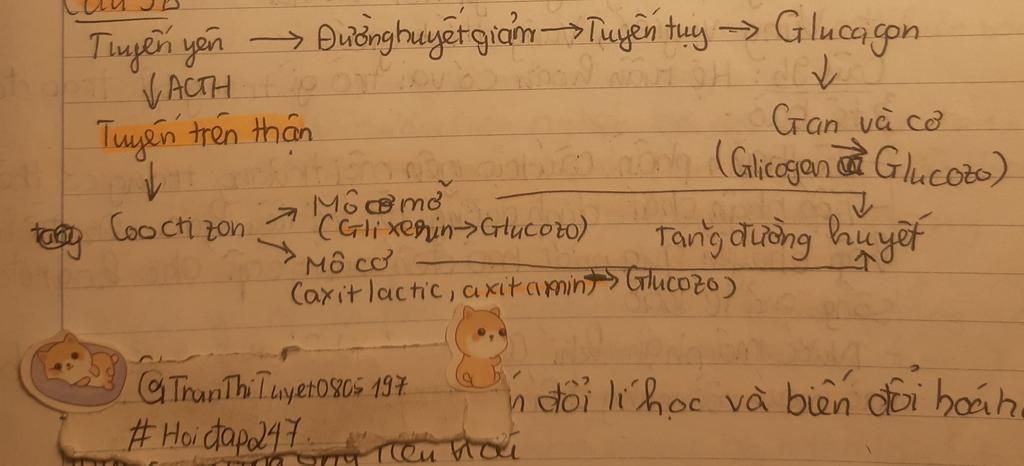 Câu 3b
Tuyến yên → Đường huyết giảm → Tuyến tụy → Glucagon
↓ ACTH
Tuyến trên thận
Gan và cơ
(Glicogan → Glucozo)
Coocti zon
Mô mỡ
(Glixerin → Glucozo)
Tăng đường huyết
Mô cơ
(axit lactic, axit amin → Glucozo)
@TranThiTuyet0805197
#Hoidap247
đổi lí học và biến đổi hoá h